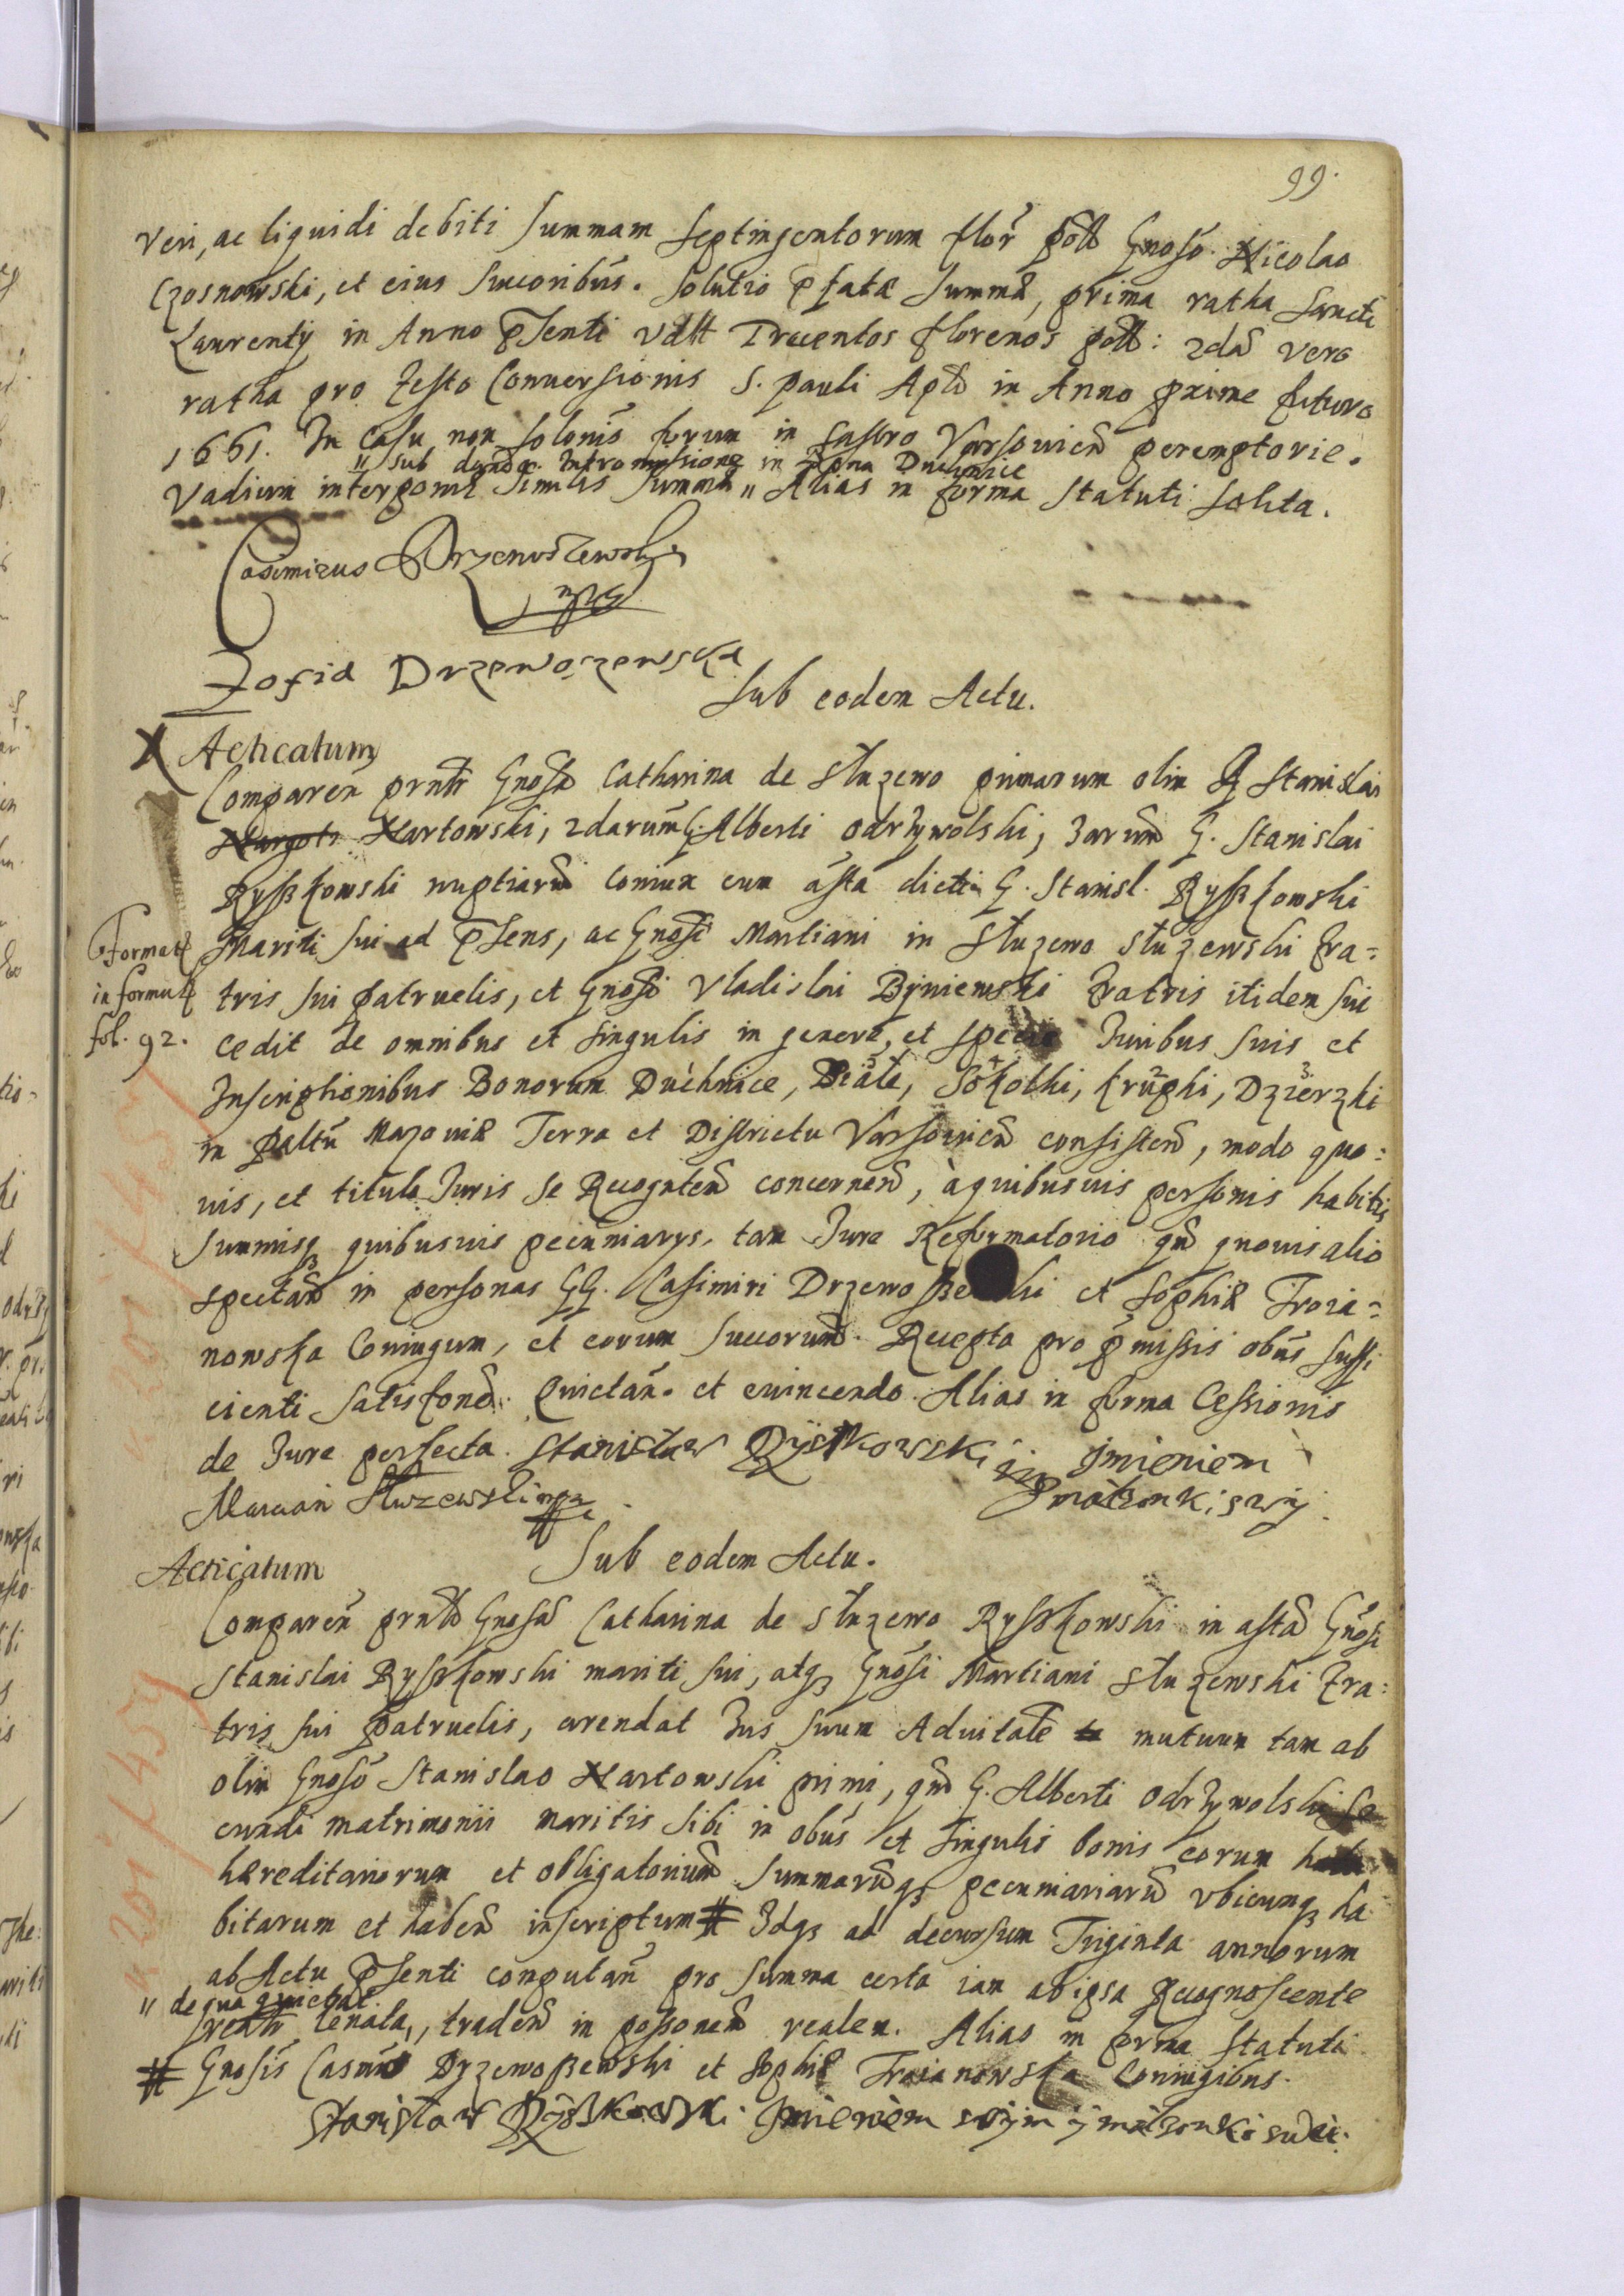 99.
Veri, ac liquidi debiti Summam Septingentorum flor. poll Gnoso. Nicolao
Czosnowski, et eius Succoribus. Solutio pfatæ Summæ, prima ratha Sancti
Laurentij in Anno pnti vdllt Trecentos florenos poll: 2da vero
ratha pro festo Conuersionis S. Pauli Apli in Anno prime futuro
1661. In Casu non solonis forum in Castro Varsouien peremptorie.
" sub Intromissione in Bona Duchnice
Vadium interponit Similis Summæ " Alias in forma Statuti Solita.
Casimirus Drzewoszewski
mpp
Zofia Drzewoszewska
Sub eodem Actu.
X Acticatum
Comparen prntr Gnosa Catharina de Służewo primarum olim G Stanislai
Nartowski, 2darum G. Alberti Odrzywolski, 3arum G. Stanislai
Ryszkowski nuptiarum Coniux cum assta dicti G. Stanisl. Ryszkowski
Mariti sui ad psens, ac Gnosi Martiani in Służewo Służewski Fra=
Format
in formul
fol. 92.
tris sui patruelis, et Gnosi Vladislai Byniewski Fratris itidem sui
cedit de omnibus et singulis in genere, et specie Iuribus suis et
Inscriptionibus Bonorum Duchnice, Białe, Sokołki, Krupki, Dzierzki
in Paltu Mazouiæ Terra et Districtu Varsouien consisten, modo quo=
uis, et titulo Iuris se Recognten concernen, à quibusuis personis habitis
Summisq quibusuis pecuniarys, tam Iure Reformatorio qm quouis alio
spectan in personas GG. Casimiri Drzewosze ski et Sophiæ Troia=
nowska Coniugum, et eorum Succorum. Recepta pro pmissis obus suffi
cienti Satisfone. Quictan. et euincendo. Alias in forma Cessionis
de Iure perfecta. Stanisław Ryszkowski Imieniem
Marcian Służewski mpp małzonki swy
Sub eodem Actu.
Acticatum
Comparen prntr Gnosa Catharina de Służewo Ryszkowski in assta Gnosi
Stanislai Ryszkowski mariti sui, atq Gnosi Martiani Służewski Fra=
tris sui patruelis, arendat Ius suum Aduitale mutuum tam ab
olim Gnoso Stanislao Nartowski primi, qm G. Alberti Odrzywolski se
cundi matrimonii maritis sibi in obus et singulis bonis eorum
hæreditariorum et obligatorium Summarumq pecuniariarum vbicunq ha
bitarum et haben inscriptum # Idq ad decursum Triginta annorum
ab Actu psenti computan pro summa certa iam ab ipsa Recognoscente
" de qua quietat
leuata ", traden in possonem realem. Alias in forma Statuti
# Gnosis Casmo Drzewoszewski et Sophiæ Troianowska Coniugibus.
Stanisław Ryszkowski Imieniem swym y małzonki swei.